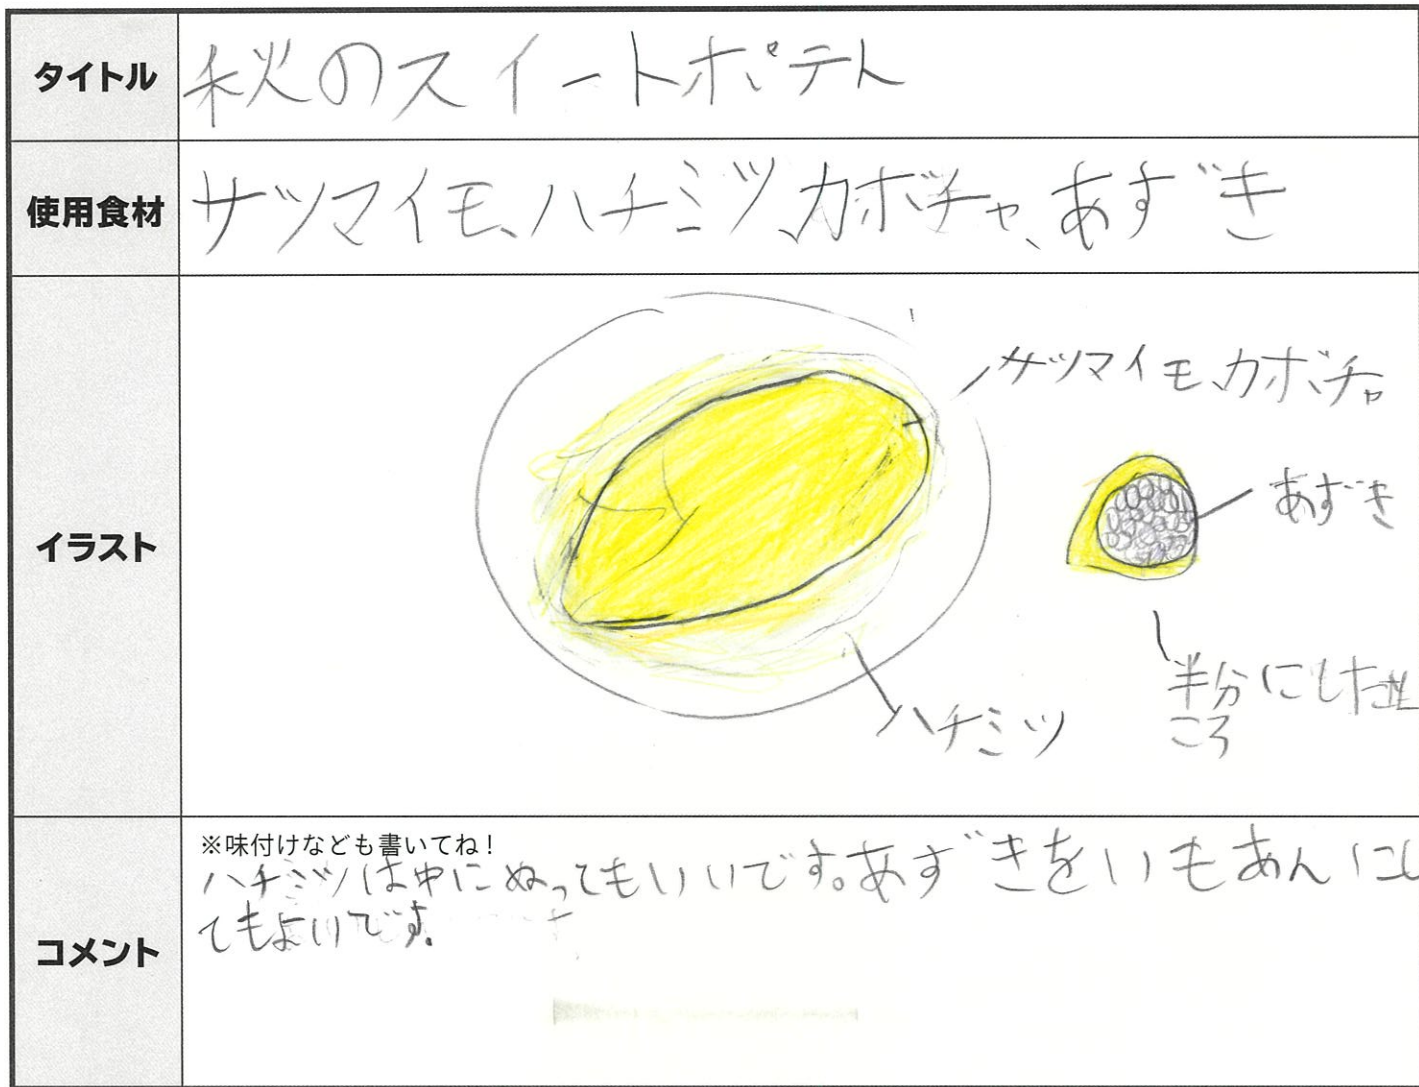 タイトル
秋のスイートポテト
使用食材
サツマイモ、ハチミツ、カボチャ、あずき
イラスト
サツマイモ、カボチャ
あずき
ハチミツ
半分にしたと
ころ
コメント
※味付けなども書いてね!
ハチミツは中にぬってもいいです。あずきをいもあんにし
てもよいです。